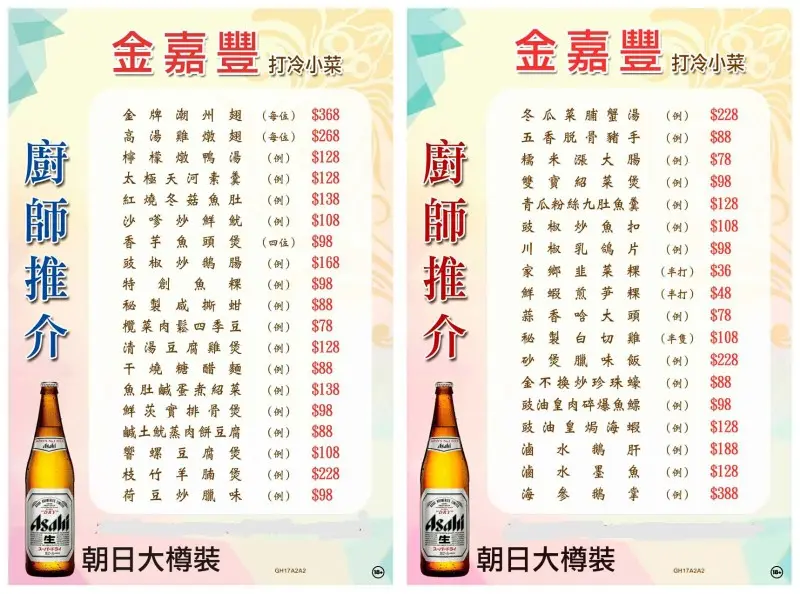 金嘉豐 打冷小菜
廚師推介
金牌潮州翅 (每位) $368
高湯雞燉翅 (每位) $268
檸檬燉鴨湯 (例) $128
太極天河素羹 (例) $128
紅燒冬菇魚肚 (例) $138
沙嗲炒鮮魷 (例) $108
香芋魚頭煲 (四位) $98
豉椒炒鵝腸 (例) $168
特創魚粿 (例) $98
秘製咸撕蚶 (例) $88
欖菜肉鬆四季豆 (例) $78
清湯豆腐雞煲 (例) $128
干燒糖醋麵 (例) $88
魚肚鹹蛋煮紹菜 (例) $138
鮮茨實排骨煲 (例) $98
鹹土魷蒸肉餅豆腐 (例) $88
響螺豆腐煲 (例) $108
枝竹羊腩煲 (例) $228
荷豆炒臘味 (例) $98
Asahi
生
朝日大樽裝
GH17A2A2
18+
金嘉豐 打冷小菜
廚師推介
冬瓜菜脯蟹湯 (例) $228
五香脱骨豬手 (例) $88
糯米漲大腸 (例) $78
雙寶紹菜煲 (例) $98
青瓜粉絲九肚魚羹 (例) $128
豉椒炒魚扣 (例) $108
川椒乳鴿片 (例) $98
家鄉韭菜粿 (半打) $36
鮮蝦煎笋粿 (半打) $48
蒜香哈大頭 (例) $78
秘製白切雞 (半隻) $108
砂煲臘味飯 (例) $228
金不換炒珍珠蠔 (例) $88
豉油皇肉碎爆魚鰾 (例) $98
豉油皇焗海蝦 (例) $128
滷水鵝肝 (例) $188
滷水墨魚 (例) $128
海參鵝掌 (例) $388
Asahi
生
朝日大樽裝
GH17A2A2
18+